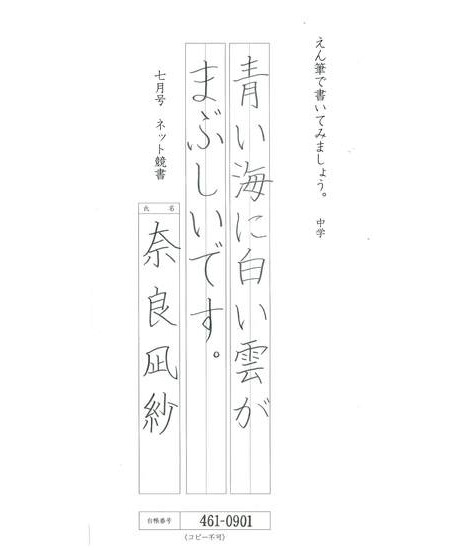 えん筆で書いてみましょう。 中学
青い海に白い雲が
まぶしいです。
七月号 ネット競書
氏名
奈良凪紗
台帳番号 461-0901
(コピー不可)